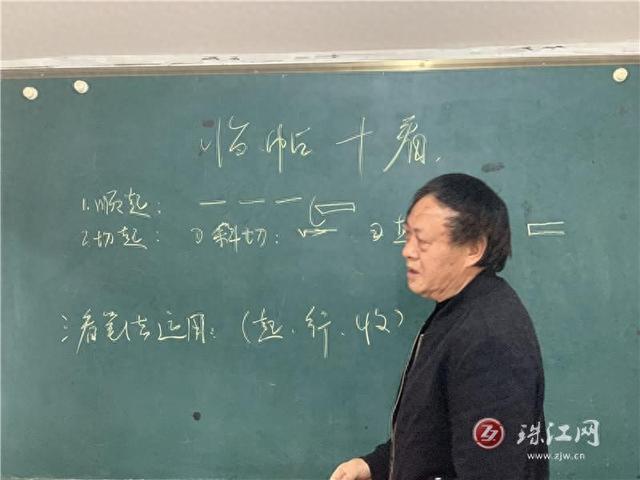 临帖十看.
1.顺起:
2.切起: ①斜切: ②
三看笔法运用: (起.行.收)
珠江网
www.zjw.cn